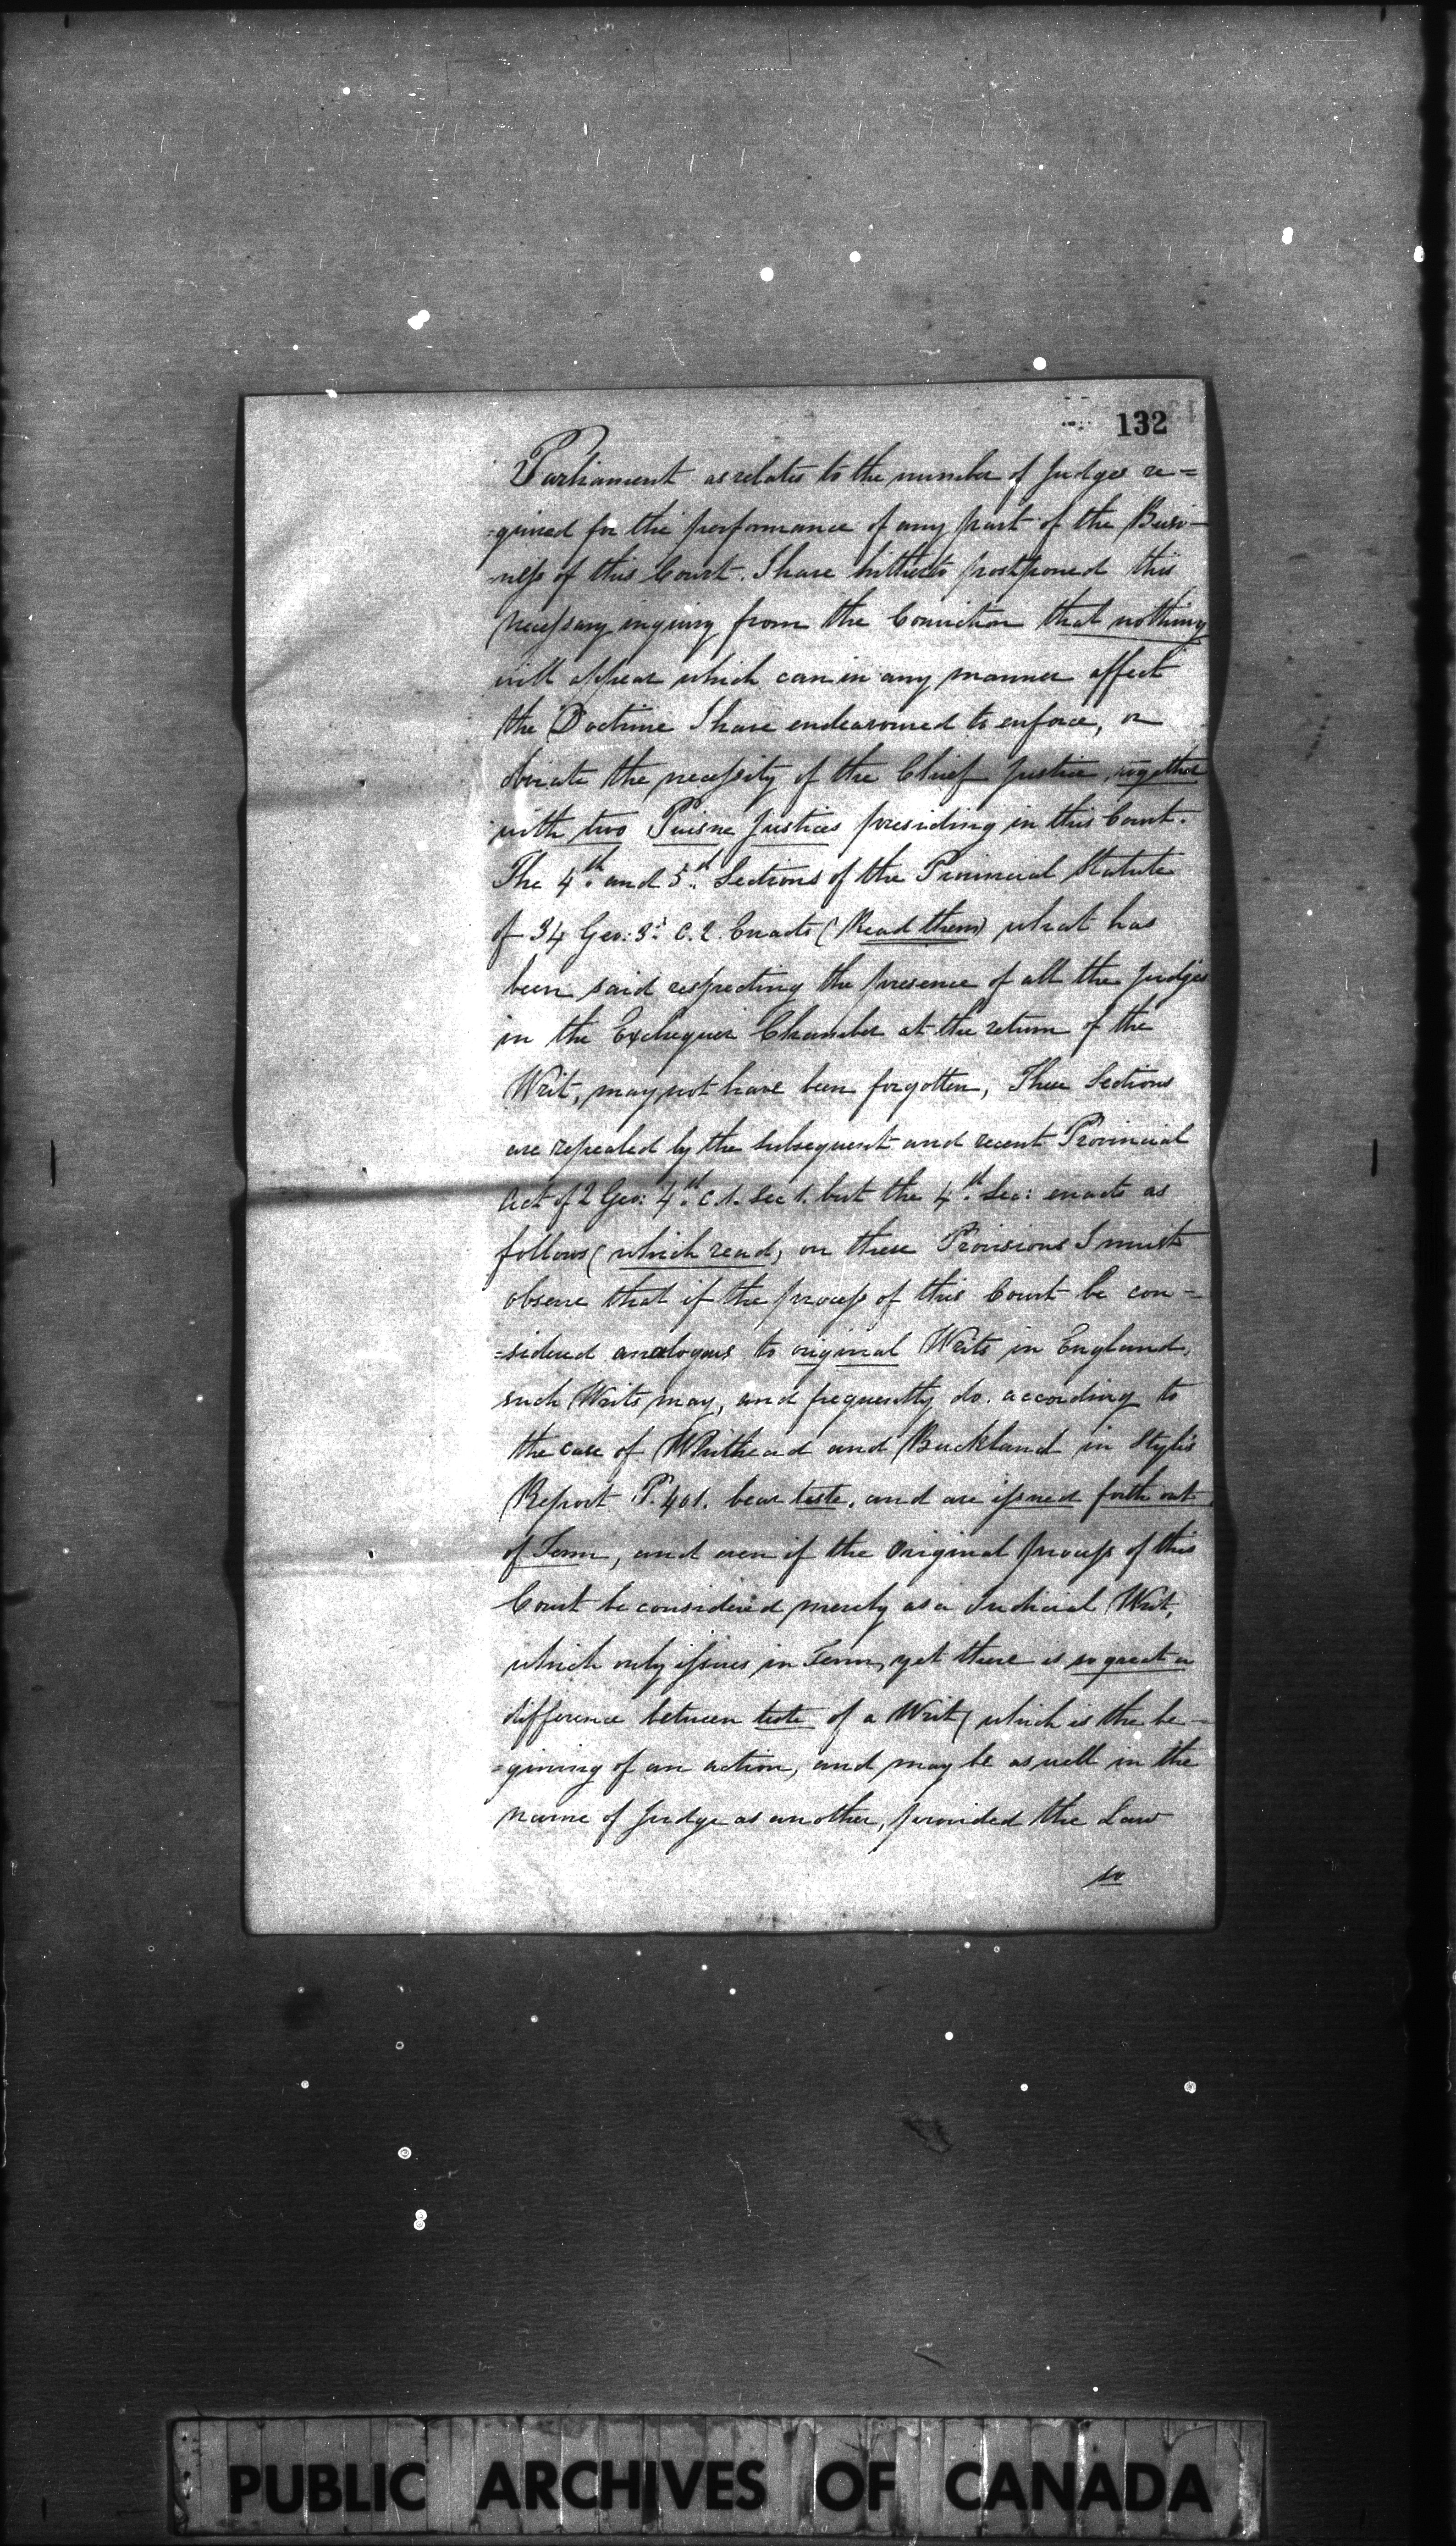 132
Parliament as relates to the number of Judges re=
=quired for the performance of any part of the Busi-
ness of this Court. I have hitherto postponed this
necessary inquiry from the Conviction that nothing
will appear which can in any manner affect
the Doctrine I have endeavoured to enforce, or
obviate the necessity of the Chief Justice, together
with two Puisne Justices presiding in this Court.
The 4th. and 5th. Sections of the Provincial Statute
of 34 Geo: 3d. C. 2. Enacts (Read them) what has
been said respecting the presence of all the Judges
in the Exchequer Chamber at the return of the
Writ, may not have been forgotten, These Sections
are repealed by the subsequent and recent Provincial
Act of 2 Geo: 4th. C. 1. Sec 1. but the 4th. Sec: enacts as
follows (which read, on these Provisions I must
observe that if the process of this Court be con-
=sidered analogous to original Writs in England,
such Writs may, and frequently do. according to
the case of Whithead and Buckland in Style's
Report P. 401. bear teste, and are issued forth out
of Term, and even if the Original process of this
Court be considered merely as a Judicial Writ,
which only issues in Term, yet there is so great a
difference between teste of a Writ (which is the be-
=gining of an action, and may be as well in the
name of Judge as another, provided the Law
so
PUBLIC ARCHIVES OF CANADA